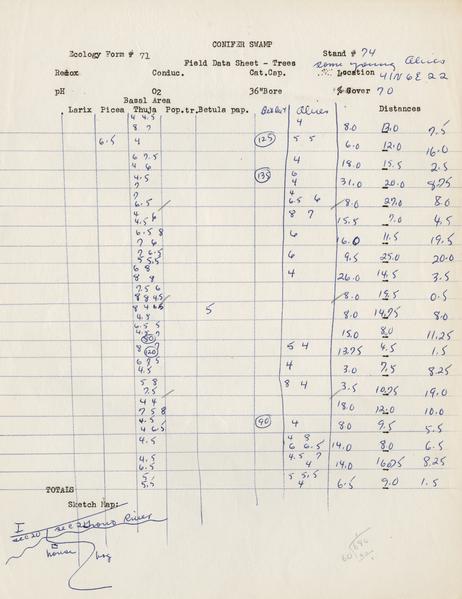 CONIFER SWAMP
Ecology Form # 71 Stand # 74
Field Data Sheet - Trees some young Alnus
Redox Conduc. Cat.Cap. Location 41N 6E 22
pH O2 36"Bore % Cover 70
Basal Area
Larix Picea Thuja Pop.tr. Betula pap. Alnus Distances
4 4.5 4
8 7 8.0 13.0 7.5
6.5 4 125 5 5 6.0 12.0 16.0
6 7.5 4
4 6 18.0 15.5 2.5
4.5 135 6
7 4 31.0 20.0 8.75
7 4
6.5 6.5 6 8.0 27.0 8.0
4 6 8 7
4.5 15.5 7.0 4.5
6.5 8 6
7 6 16.0 11.5 19.5
7 6.5 6
5 5.5 9.5 25.0 20.0
6 8 4
8 8 26.0 14.5 3.5
7.5 6
8 8 4.5 8.0 15.5 0.5
8 4 6.5 5
4.5 8.0 14.75 8.0
6.5 5
4.5 7 15.0 8.0 11.25
80
8 7 5 4
120 13.75 4.5 1.5
6 7.5 4
4.5 3.0 7.5 8.25
5 8 8 4
7.5 3.5 10.75 19.0
4 4
7 5 8 18.0 12.0 10.0
4.5 90 4
4 6.5 8.0 9.5 5.5
4.5 4 8
6 6.5 14.0 8.0 6.5
4.5 4.5 7
6.5 4 14.0 16.75 8.25
5 5 5.5
5.5 4 6.5 9.0 1.5
TOTALS
Sketch Map:
I
sec 20 sec 21 River
house bog